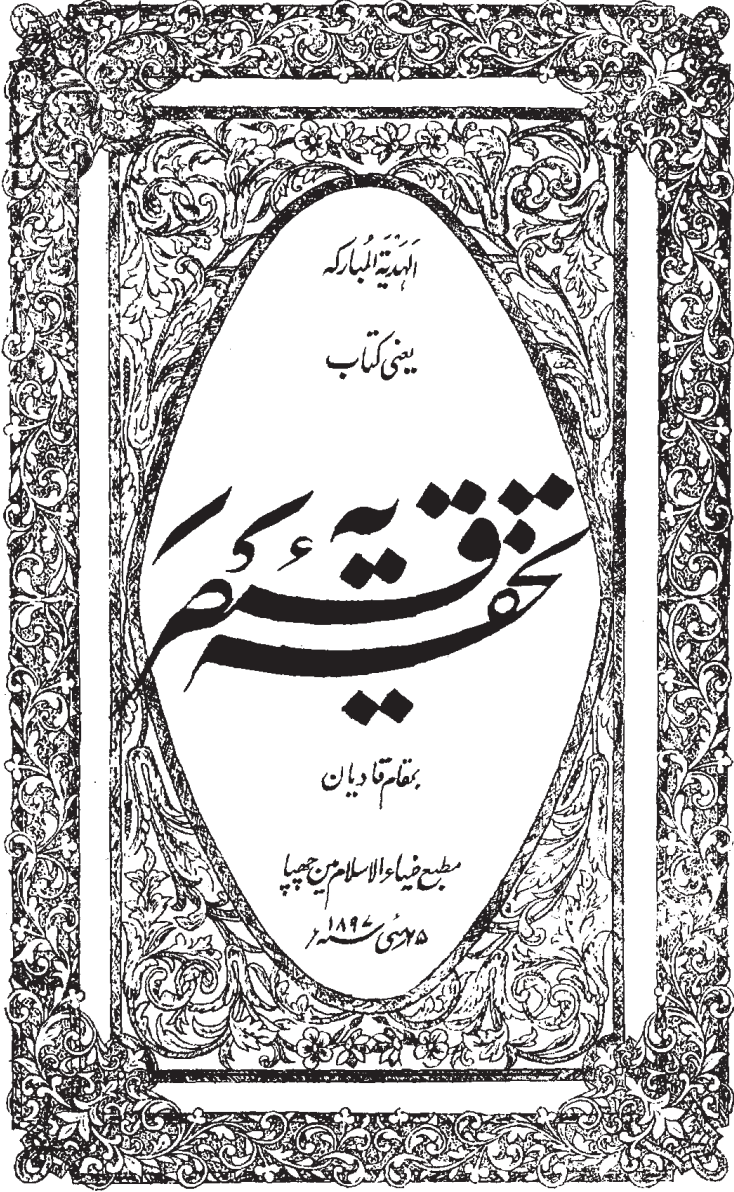 اَلْهَدْيَةُ الْمُبَارکہ
یعنی کتاب
تحفہ قیصریہ
بمقام قادیان
مطبع ضیاء الاسلام میں چھپا
۲۵ مئی سنہ ۱۸۹۷ء